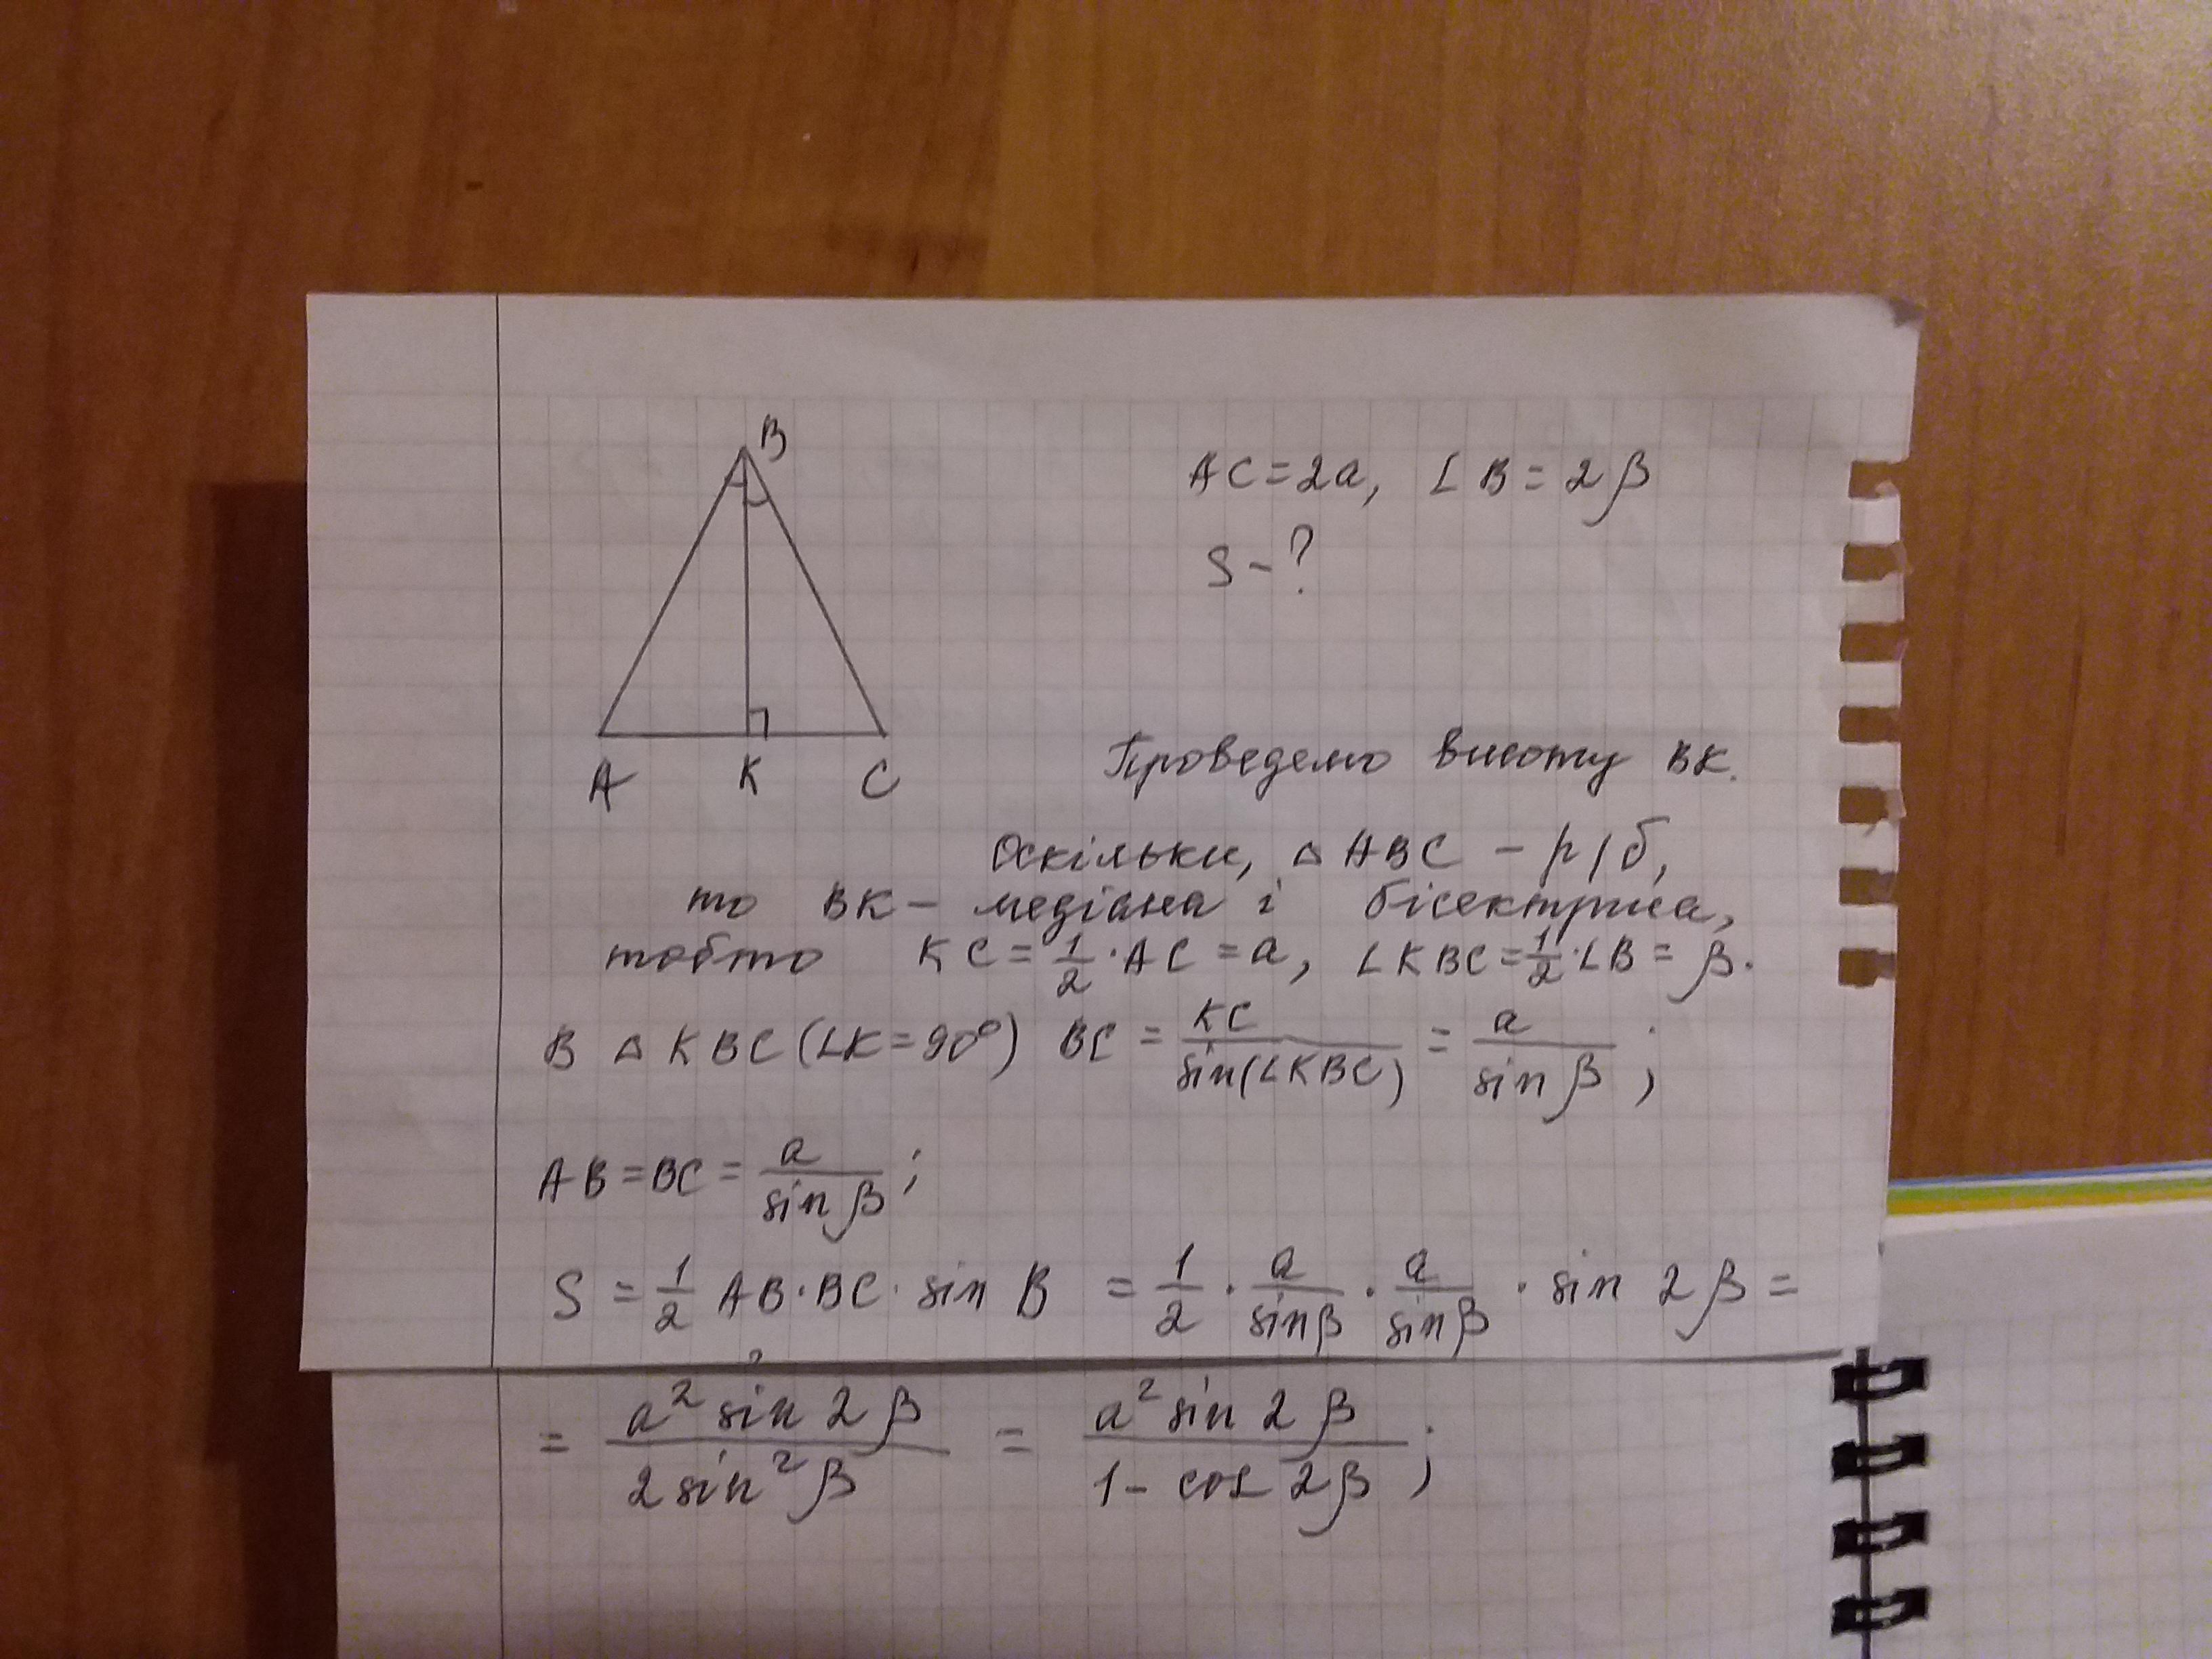 B
A K C
AC=2a, ∠B=2β
S-?
Проведемо висоту BK.
Оскільки, △ABC – р/б,
то BK – медіана і бісектриса,
тобто KC=1/2·AC=a, ∠KBC=1/2·∠B=β.
В △KBC(∠K=90°) BC = KC/sin(∠KBC) = a/sin β;
AB=BC=a/sin β;
S = 1/2 AB·BC·sin B = 1/2 · a/sinβ · a/sinβ · sin 2β =
= a² sin 2β/2 sin² β = a² sin 2β/1 - cos 2β;